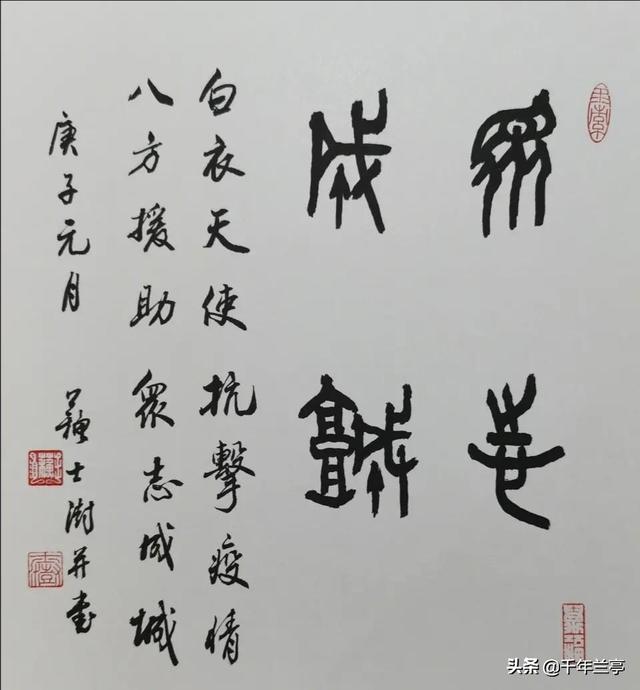 眾志
成城
白衣天使抗擊疫情
八方援助眾志成城
庚子元月 蘇士澍并書
头条 @千年兰亭